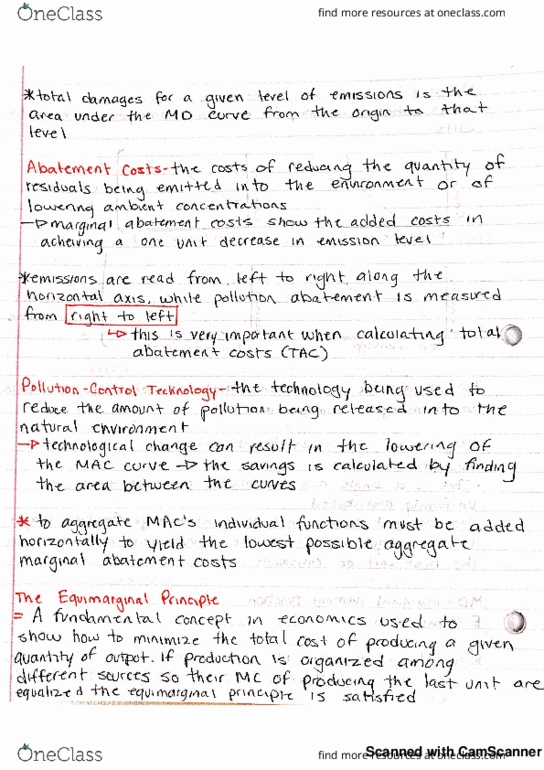 OneClass
find more resources at oneclass.com
*total damages for a given level of emissions is the
area under the MD curve from the origin to that
level
Abatement Costs-the costs of reducing the quantity of
residuals being emitted into the environment or of
lowering ambient concentrations
→marginal abatement costs show the added costs in
acheiving a one unit decrease in emission level
*emissions are read from left to right along the
horizontal axis, while pollution abatement is measured
from right to left
↳ this is very important when calculating total
abatement costs (TAC)
Pollution-Control Technology-the technology being used to
reduce the amount of pollution being released into the
natural environment
→technological change can result in the lowering of
the MAC curve → the savings is calculated by finding
the area between the curves
* to aggregate MAC's individual functions must be added
horizontally to yield the lowest possible aggregate
marginal abatement costs
The Equimarginal Principle
= A fundamental concept in economics used to
show how to minimize the total cost of producing a given
quantity of output. if production is organized among
different sources so their MC of producing the last unit are
equalized the equimarginal principle is satisfied
OneClass
find more resources at oneclass.com
Scanned with CamScanner